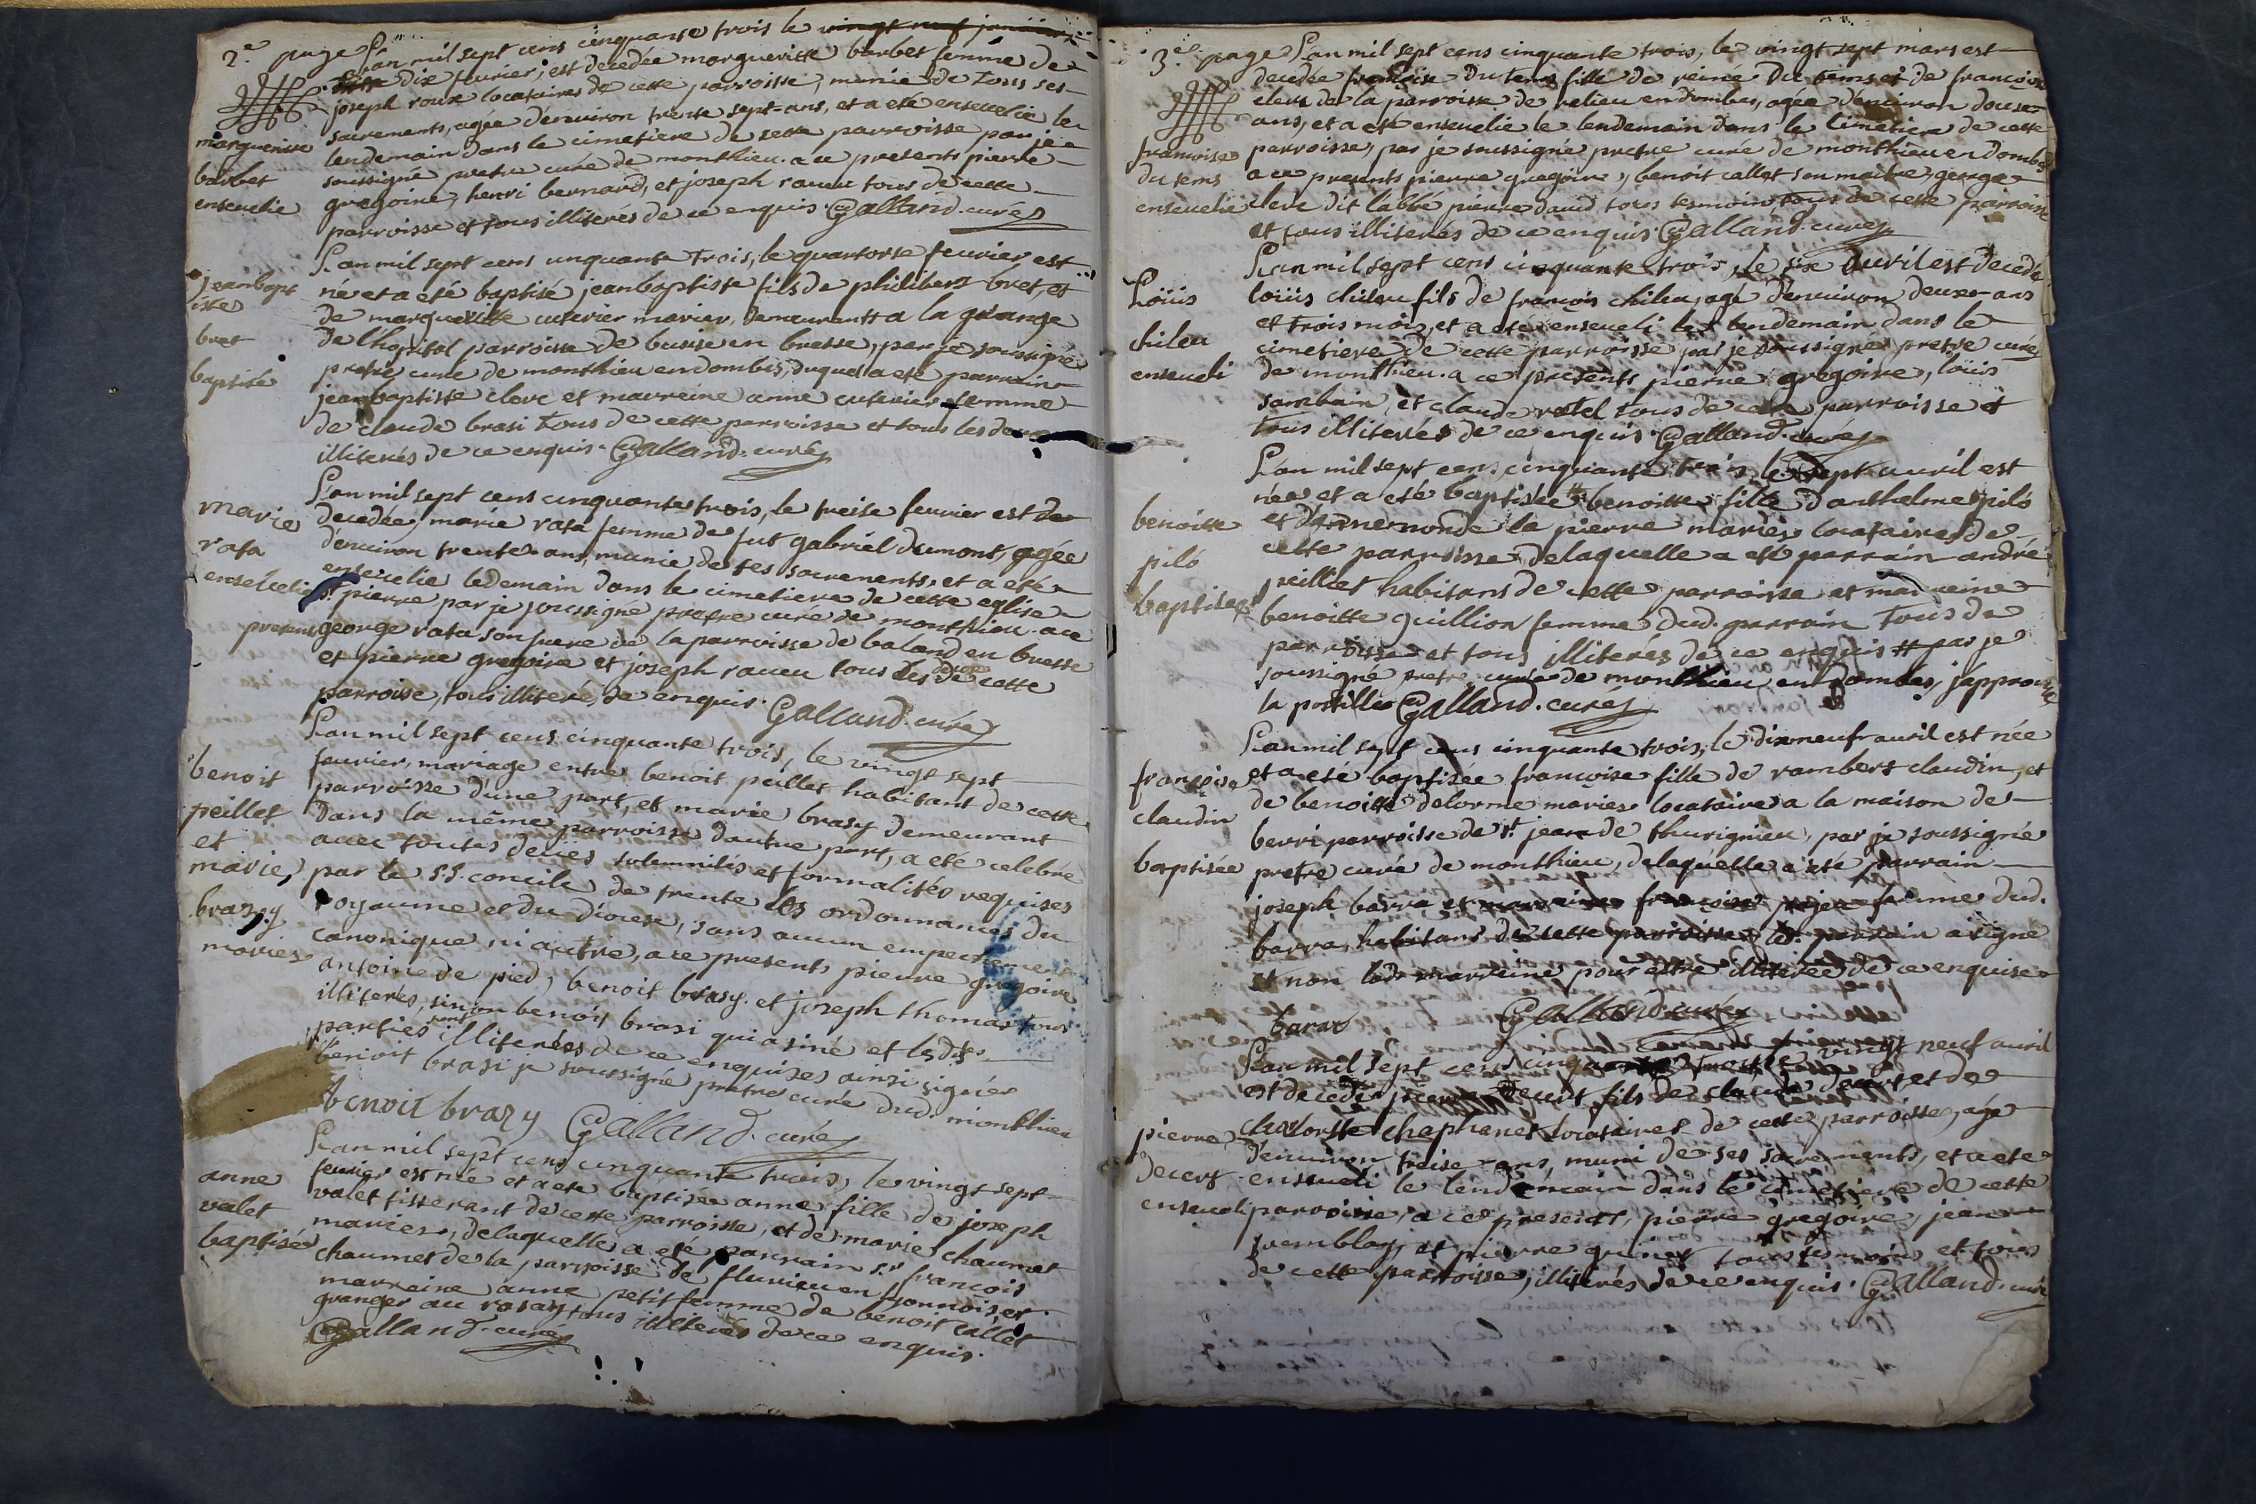 2.e page L'an mil sept cens cinquante trois le vingt neuf janvier
dix fevrier, est decedée marguerite barbet femme de
joseph roux locataires de cette parroisse, munie de tous ses
sacrements, agée d'environ trente sept ans, et a eté ensevelie le
lendemain dans le cimetiere de cette parroisse par je
soussigné pretre curé de monthieu. a ce presents pierre
gregoire, henri bernard, et joseph raveu tous de cette
parroisse et tous illiterés de ce enquis. Galland. curé
marguerite
barbet
ensevelie
L'an mil sept cens cinquante trois, le quatorse fevrier est
né et a eté baptisé jean baptiste fils de philibert bret, et
de marguerite cuterier mariés, demeurants a la grange
de l'hopital parroisse de busse en bresse, par je soussigné
pretre curé de monthieu en dombes, duquel a eté parrain
jean baptiste clerc et marreine anne cuterier femme
de claude brasi tous de cette parroisse et tous les deux
illiterés de ce enquis. Galland. curé
jean bapt
iste
bret
baptisé
L'an mil sept cens cinquante trois, le treise fevrier est
decedée, marie rata femme de fut gabriel dumont, agée
d'environ trente ans, munie de ses sacrements, et a eté
ensevelie le demain dans le cimetiere de cette eglise
st pierre par je soussigné pretre curé de monthieu. a ce
present george rata son frere de la parroisse de baland en bresse
et pierre gregoire et joseph raveu tous les deux de cette
parroisse, tous illiteré, de enquis. Galland. curé
marie
rata
ensevelie
L'an mil sept cens cinquante trois, le vingt sept
fevrier, mariage entre benoit peillet habitant de cette
parroisse d'une part, et marie brasy demeurant
dans la même parroisse dautre part, a eté celebré
avec toutes les solemnités et formalités requises
par le S.S. concile de trente les ordonnances du
royaume et du diocese, sans aucun empechement
canonique, ni autre, a ce presents pierre gregoire
antoine de pied, benoit brasy. et joseph thomas tous
illiterés, sinon benoit brasi qui a siné et lesdites
parties sont illiterées de ce enquises ainsi signés
benoit brasi je soussigné pretre curé dud. monthieu
benoit brazy Galland. curé
benoit
peillet
et
marie
brazy
mariés
L'an mil sept cens cinquante trois, le vingt sept
fevrier est née et a eté baptisée anne fille de joseph
valet tisserant de cette parroisse, et de marie chaumet
mariés, de laquelle a eté parrain sr françois
chaumet de la parroisse de fluvieu en lyonnois, et
marreine anne petit femme de benoit callet
granger au rasay tous illiterés de ce enquis.
Galland. curé
anne
valet
baptisée
3.e page L'an mil sept cens cinquante trois, le vingt sept mars est
decedée françoise du tems fille de reiné du tems et de françoise
clerc de la parroisse de relieu en dombes, agée d'environ douse
ans, et a eté ensevelie le lendemain dans le cimetiere de cette
parroisse, par je soussigné pretre curé de monthieu en dombes
a ce presents pierre gregoire, benoit callet son maitre, george
clerc dit labbé pierre david tous temoins tous de cette parroisse
et tous illiterés de ce enquis Galland. curé
francoise
du tems
ensevelie
L'an mil sept cens cinquante trois, le six avril est decedé
loüis chileu fils de françois chileu, agé d'environ deux ans
et trois mois, et a eté enseveli le lendemain dans le
cimetiere de cette parroisse par je soussigné pretre curé
de monthieu. a ce presents pierre gregoire, loüis
sambain, et claude ratel tous de cette parroisse et
tous illiterés de ce enquis. Galland. curé
Loüis
chileu
enseveli
L'an mil sept cens cinquante trois, le sept avril est
née et a eté baptisée benoitte fille d'anthelme piló
et d'annemonde la pierre mariés locataires de
cette parroisse de laquelle a eté parrain andré
peillet habitans de cette parroisse et marreine
benoitte guillion femme dud. parrain tous de
parroisse et tous illiterés de ce enquis par je
soussigné pretre curé de monthieu en dombes, j'approuve
la postille Galland. curé
benoitte
piló
baptisée
L'an mil sept cens cinquante trois, le dixneuf avril est née
et a eté baptisée françoise fille de rambert claudin, et
de benoitte delorme mariés locataires a la maison de
berri parroisse de st jean de thurignieu, par je soussigné
pretre curé de monthieu, de laquelle a eté parrain
joseph barra et marreine françoise femme dud.
barra, habitans de cette parroisse led. parrain a signé
et non lad. marreine pour estre illiterée de ce enquise
barra Galland. curé
françoise
claudin
baptisée
L'an mil sept cens cinquante trois le vingt neuf avril
est decedé pierre decert fils de claude decert et de
claudorsse chaphanel locataires de cette parroisse, agé
d'environ treise ans, muni de ses sacrements, et a eté
enseveli le lendemain dans le cimetiere de cette
parroisse, a ce presents, pierre gregoire, jean
tremblay, et pierre tous temoins et tous
de cette parroisse, illiterés de ce enquis. Galland. curé
pierre
decert
enseveli